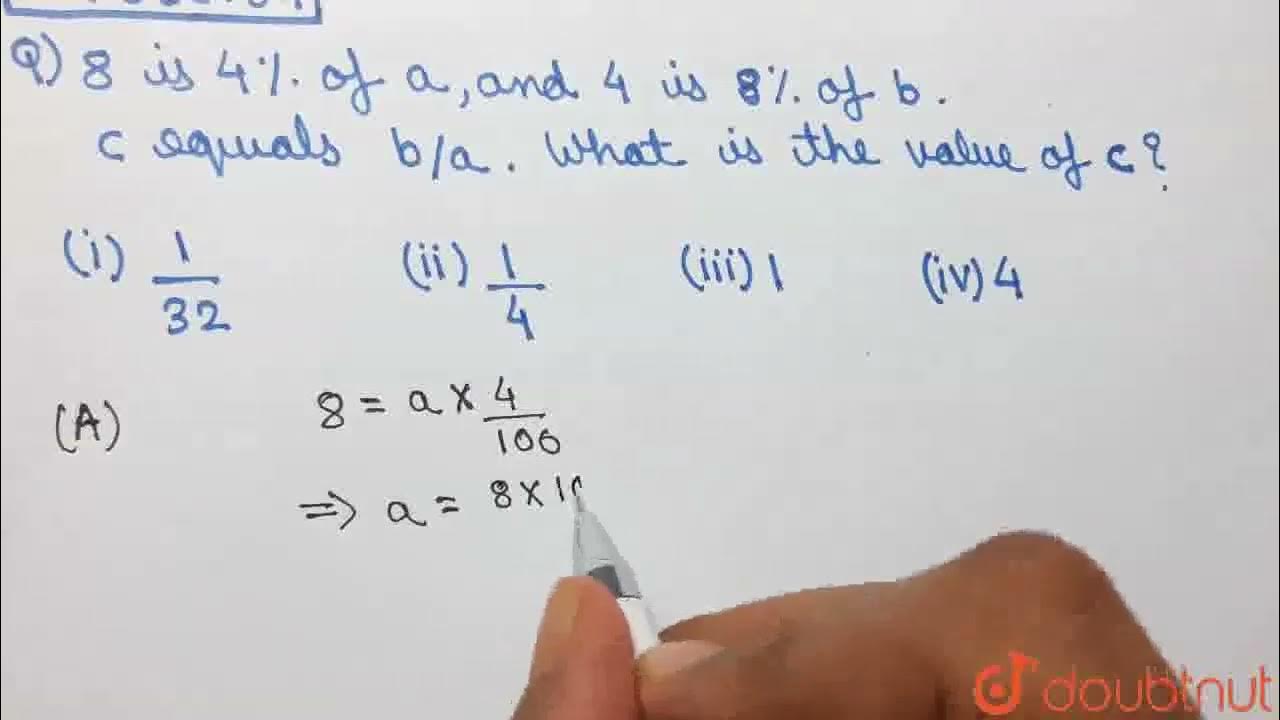 Q) 8 is 4% of a, and 4 is 8% of b.
c equals b/a. What is the value of c?
(i) 1/32 (ii) 1/4 (iii) 1 (iv) 4
(A) 8 = a × 4/100
⇒ a = 8 × 10
doubtnut